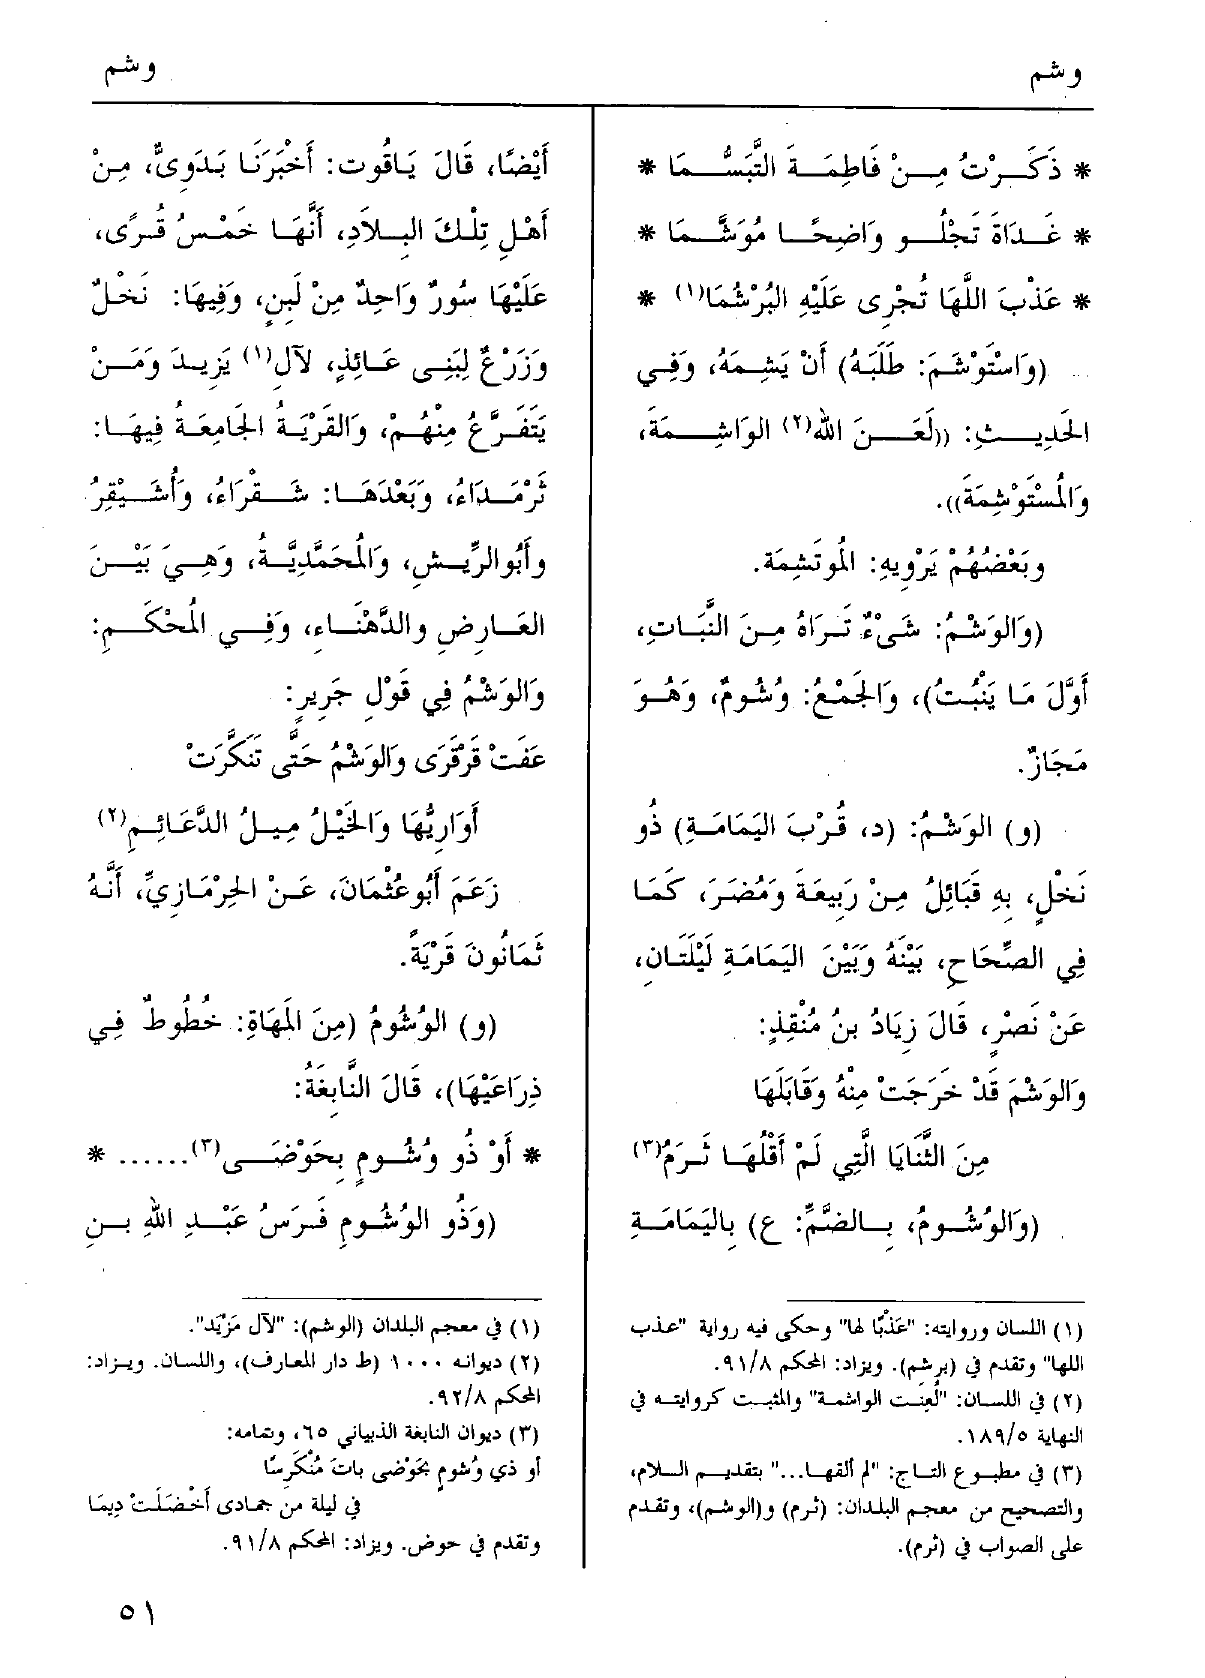 وشم
وشم
* ذَكَرْتُ مِنْ فَاطِمَةَ التَّبَسُّمَا *
* غَدَاةَ تَجْلُو وَاضِحًا مُوَشَّمَا *
* عَذْبَ اللَّهَا تُجْرِى عَلَيْهِ البُرْشُمَا(١) *
(وَاسْتَوْشَمَ: طَلَبَهُ) أَنْ يَشِمَهُ، وَفِي
الحَدِيثِ: ((لَعَنَ الله(٢) الوَاشِمَةَ،
وَالمُسْتَوْشِمَةَ)).
وَبَعْضُهُمْ يَرْوِيهِ: المُوتَشِمَة.
(وَالوَشْمُ: شَىْءٌ تَرَاهُ مِنَ النَّبَاتِ،
أَوَّلَ مَا يَنْبُتُ)، وَالجَمْعُ: وُشُومٌ، وَهُوَ
مَجَازٌ.
(و) الوَشْمُ: (د، قُرْبَ اليَمَامَةِ) ذُو
نَخْلٍ، بِهِ قَبَائِلُ مِنْ رَبِيعَةَ وَمُضَرَ، كَمَا
فِي الصِّحَاحِ، بَيْنَهُ وَبَيْنَ اليَمَامَةِ لَيْلَتَانِ،
عَنْ نَصْرٍ، قَالَ زِيَادُ بنُ مُنْقِذٍ:
وَالوَشْمَ قَدْ خَرَجَتْ مِنْهُ وَقَابَلَهَا
مِنَ الثَّنَايَا الَّتِي لَمْ أَقْلُهَا ثَرَمُ(٣)
(وَالوُشُومُ، بِالضَّمِّ: ع) بِاليَمَامَةِ
(١) اللسان وروايته: "عَذْبًا لها" وحكى فيه رواية "عذب
اللها" وتقدم في (برشم). ويزاد: المحكم ٩١/٨.
(٢) في اللسان: "لُعِنَت الواشمة" والمثبت كروايته في
النهاية ١٨٩/٥.
(٣) في مطبوع التاج: "لم ألقها..." بتقديم السلام،
والتصحيح من معجم البلدان: (ثرم) و(الوشم)، وتقدم
على الصواب في (ثرم).
أَيْضًا، قَالَ يَاقُوت: أَخْبَرَنَا بَدَوِىٌّ، مِنْ
أَهْلِ تِلْكَ البِلاَدِ، أَنَّهَا خَمْسُ قُرًى،
عَلَيْهَا سُورٌ وَاحِدٌ مِنْ لَبِنٍ، وَفِيهَا: نَخْلٌ
وَزَرْعٌ لِبَنِى عَائِذٍ، لآل(١) يَزِيدَ وَمَنْ
يَتَفَرَّعُ مِنْهُمْ، وَالقَرْيَةُ الجَامِعَةُ فِيهَا:
ثَرْمَدَاءُ، وَبَعْدَهَا: شَقْرَاءُ، وَأُشَيْقِرُ
وأَبُوالرِّيشِ، وَالمُحَمَّدِيَّةُ، وَهِيَ بَيْنَ
العَارِضِ والدَّهْنَاءِ، وَفِي المُحْكَمِ:
وَالوَشْمُ فِي قَوْلِ جَرِيرٍ:
عَفَتْ قَرْقَرَى وَالوَشْمُ حَتَّى تَنَكَّرَتْ
أَوَارِيُّهَا وَالخَيْلُ مِيلُ الدَّعَائِمِ(٢)
زَعَمَ أَبُوعُثْمَانَ، عَنْ الحِرْمَازِيِّ، أَنَّهُ
ثَمَانُونَ قَرْيَةً.
(و) الوُشُومُ (مِنَ المَهَاةِ: خُطُوطٌ فِي
ذِرَاعَيْهَا)، قَالَ النَّابِغَةُ:
* أَوْ ذُو وُشُومٍ بِحَوْضَى(٣)...... *
(وَذُو الوُشُومِ فَرَسُ عَبْدِ اللهِ بنِ
(١) في معجم البلدان (الوشم): "لآل مَزْيَد".
(٢) ديوانه ١٠٠٠ (ط دار المعارف)، واللسان. ويزاد:
المحكم ٩٢/٨.
(٣) ديوان النابغة الذبياني ٦٥، وتمامه:
أو ذي وُشومٍ بحَوْضى باتَ مُنْكَرِسًا
في ليلة من جمادى أخْضَلَتْ دِيمَا
وتقدم في حوض. ويزاد: المحكم ٩١/٨.
٥١